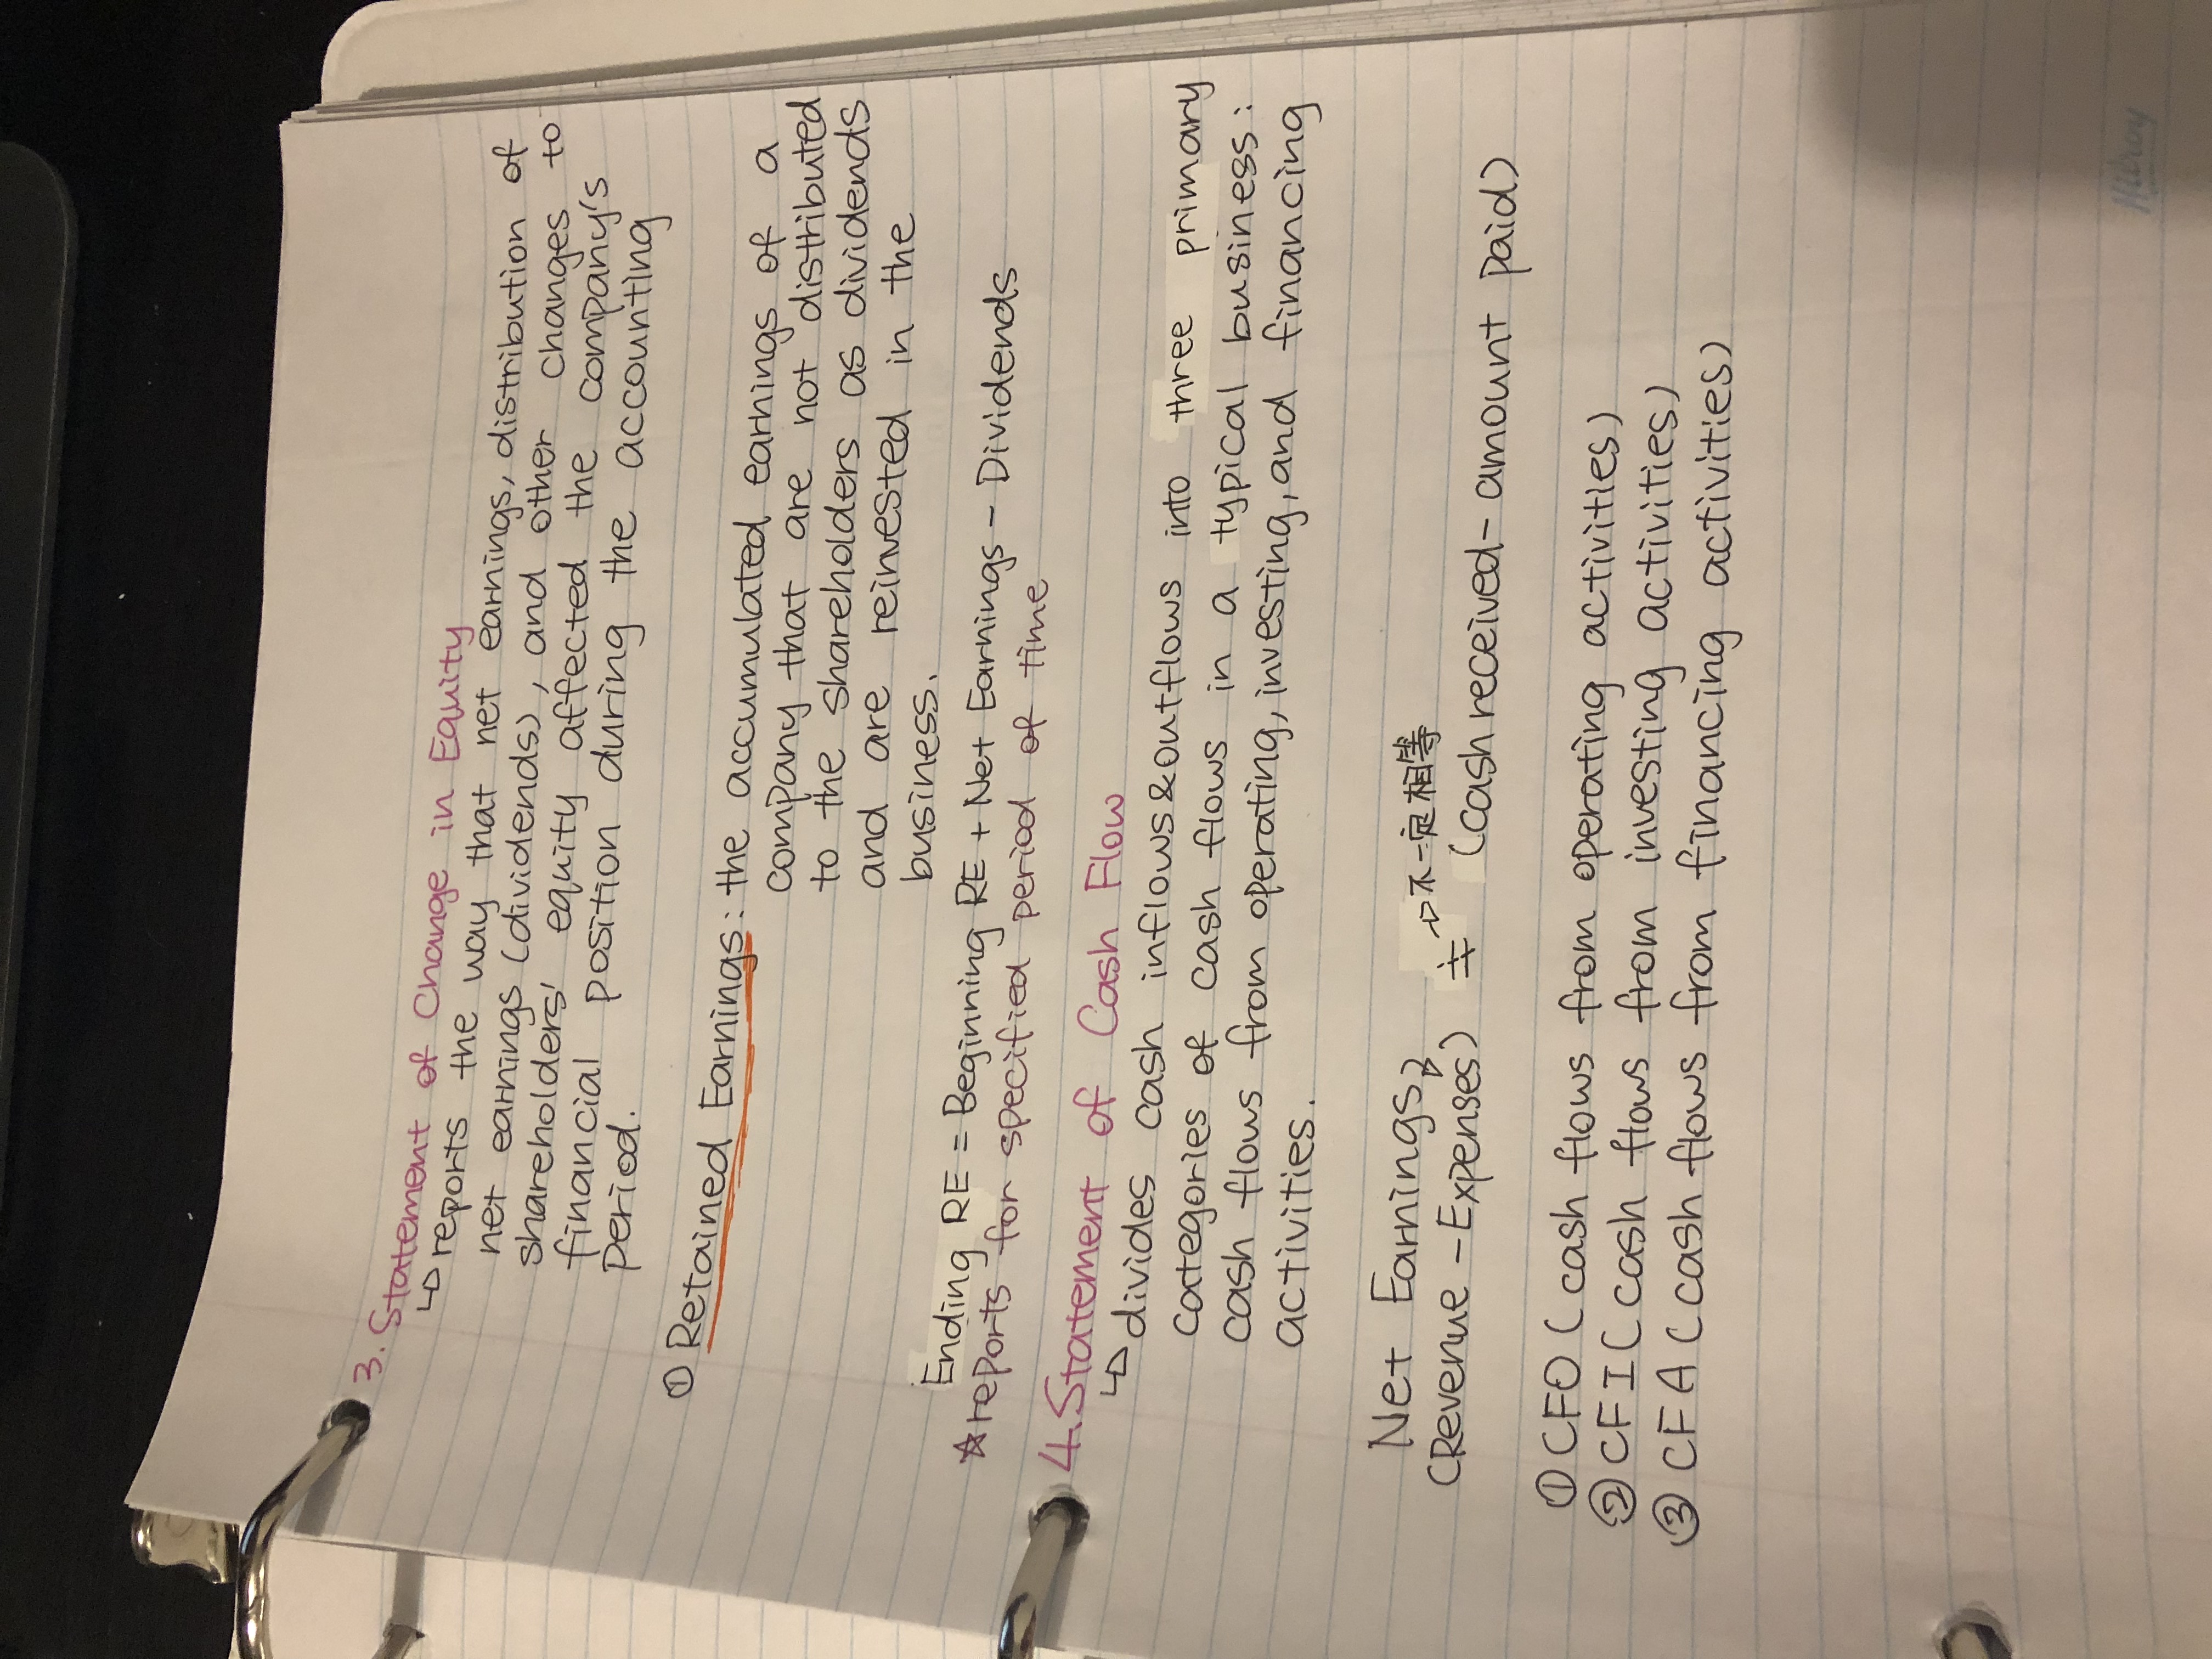 3. Statement of Change in Equity
↳ reports the way that net earnings, distribution of
net earnings (dividends), and other changes to
shareholders' equity affected the company's
financial position during the accounting
period.
① Retained Earnings: the accumulated earnings of a
company that are not distributed
to the shareholders as dividends
and are reinvested in the
business.
Ending RE = Beginning RE + Net Earnings - Dividends
☆ reports for specified period of time
4. Statement of Cash Flow
↳ divides cash inflows & outflows into three primary
categories of cash flows in a typical business:
cash flows from operating, investing, and financing
activities.
Net Earnings ≠ → 不一定相等
(Revenue - Expenses) ≠ (cash received - amount paid)
① CFO (cash flows from operating activities)
② CFI (cash flows from investing activities)
③ CFA (cash flows from financing activities)
Hilroy